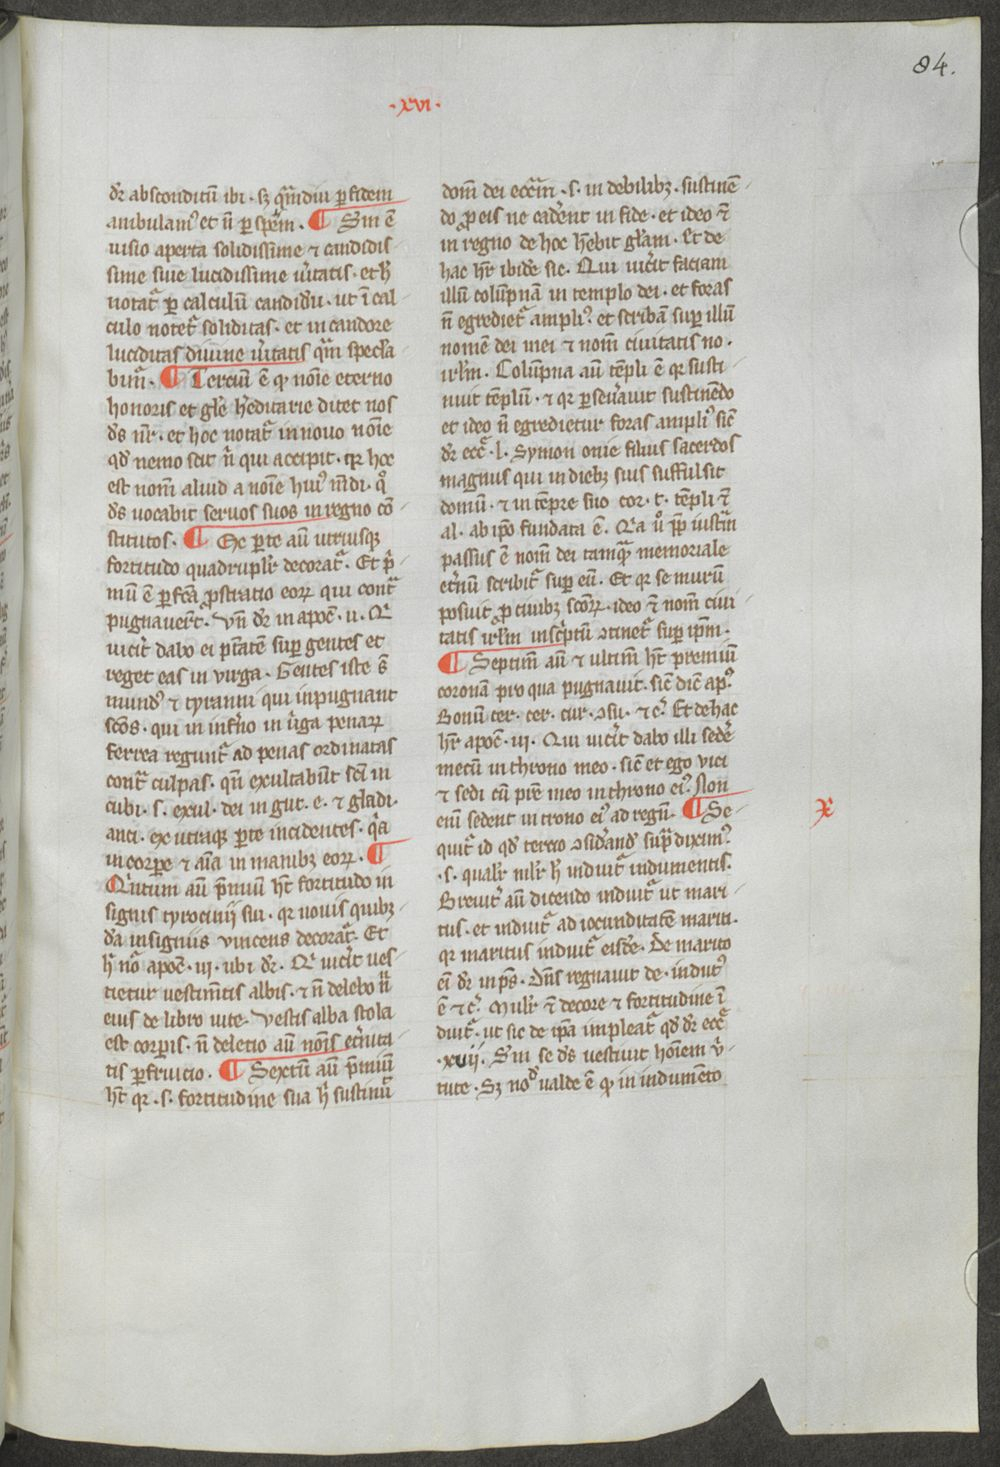 84.
·xvi·
dr̄ absconditū ibi · sꝫ qm̄diu ꝑ fidem
ambulamꝰ et nō ꝑ spēm · ¶ Sm̄ ē
uisio aperta solidissime ⁊ candidis
sime siue lucidissime uītatis · et hͦ
notat᷑ ꝑ calculū candidū · ut ī cal
culo notet᷑ soliditas · et in candore
luciditas diuine uītatis qm̄ specla
bim᷑ · ¶ Terciū ē ꝙ noīe eterno
honoris et gl̄e hereditarie ditet nos
ds̄ nr̄ · et hoc notat᷑ in nouo noīe
qd̄ nemo scit nͥ qui accipit · qꝛ hoc
est nom̄ aliud a noīe huiꝰ mdi · qͦ
ds̄ uocabit seruos suos in regno cō
stitutos · ¶ Ex ꝑte aū utriusqꝫ
fortitudo quadruplr̄ decorat᷑ · Et pͥ
mū ē ꝑfcā ꝓstratio eoꝝ qui cont᷑
pugnauer̄t · Vn̄ dr̄ in apoc̄ · ii · Qi
uicīt dabo ei ptātem suꝑ gentes et
reget eas in uirga · Gentes iste s̄
mundꝰ ⁊ tyranni qui inpugnant
scōs · qui in inferno in uͥga penaꝝ
ferrea regunt᷑ ad penas ordinatas
cont᷑ culpas · qn̄ exultabūt scī in
cubi · s · exul · dei in gut · e · ⁊ gladi ·
anci · ex utraqꝫ ꝑte incidentes · qͥa
in corꝑe ⁊ aīa in manibꝫ eoꝝ · ¶
Quintum aū p̄miū ht̄ fortitudo in
signis tyrocinij sui · qꝛ nouis quibꝫ
dā insigniis uincens decorat᷑ · Et
hͦ no᷑ apoc̄ · iii · ubi dr̄ · Qi uicīt ues
tietur uestimētis albis · ⁊ nō delebo nͫ
eius de libro uite · Vestis alba stola
est corꝑis · nō deletio aū noīs et̄nita
tis ꝑfruitio · ¶ Sextum aū p̄miū
ht̄ qꝛ · s · fortitudine sua hͦ sustinū
dom̄ dei ecc̄iam · s · in debilibꝫ · sustinē
do ꝓ eis ne cadēnt in fide · et ideo ⁊
in regno de hoc hēbit gl̄am · Et de
hac hr̄ ibidē sic · Qui uicīt faciam
illū colūpnā in templo dei · et foras
nō egrediet᷑ ampliꝰ · et scribā suꝑ illū
nomē dei mei ⁊ nom̄ ciuitatis no ·
irl̄m · Colūpna aū tēpli ē qꝛ susti
nuit tēplū · ⁊ qꝛ ꝑseuāuit sustinēdo
et ideo nō egredietur foras ampliꝰ sic̄
dr̄ ecc̄ · l · Symon onie filius sacerdos
magnus qui in diebꝫ suis suffulsit
domū · ⁊ in tēpre suo cor · t · tēpli ⁊
al · ab ip̄o fundata ē · Qa uͦ ꝓpt̄ iusti᷑m
passus ē nom̄ dei tamqͣ memoriale
et̄nū scribit᷑ suꝑ eū · Et qꝛ se murū
posuit ꝓ ciuibꝫ scōꝝ · ideo ⁊ nom̄ ciui
tatis irl̄m insc̄ptū ꝯtinet᷑ suꝑ ip̄m ·
¶ Septim̄ aū ⁊ ultim̄ ht̄ premiū
coronā pro qua pugnauit · sic̄ dic̄ apꝰ ·
Bonū cer · cer · cur · ꝯsu · ⁊ c̄ · Et de hac
hr̄ apoc̄ · iii · Qui uicīt dabo illi sedē
mecū in throno meo · sic̄ et ego uici
⁊ sedi cū pr̄e meo in throno eiꝰ · Non
enī sedent in trono eiꝰ ad regn̄ · ¶ Se
X
quit᷑ id qd̄ tercio ꝯsid̄andū supͣ diximꝰ
· s · qualr̄ mlr̄ hͦ induit᷑ indumentis ·
Breuit̄ aū dicendo induit᷑ ut mari
tus · et induit᷑ ad iocunditatē mariti ·
qꝛ maritus induit᷑ eisdē · De marito
eī dr̄ in ps̄ · Dn̄s regnauit de · indutꝰ
ē ⁊ c̄ · Mulr̄ ⁊ decore ⁊ fortitudine ī
duit᷑ · ut sic de ip̄a impleat᷑ qd̄ dr̄ ecc̄
· xvii · Sm̄ se ds̄ uestiuit hoīem uͥ
tute · Sꝫ nod̄ ualde ē ꝙ in indumēto